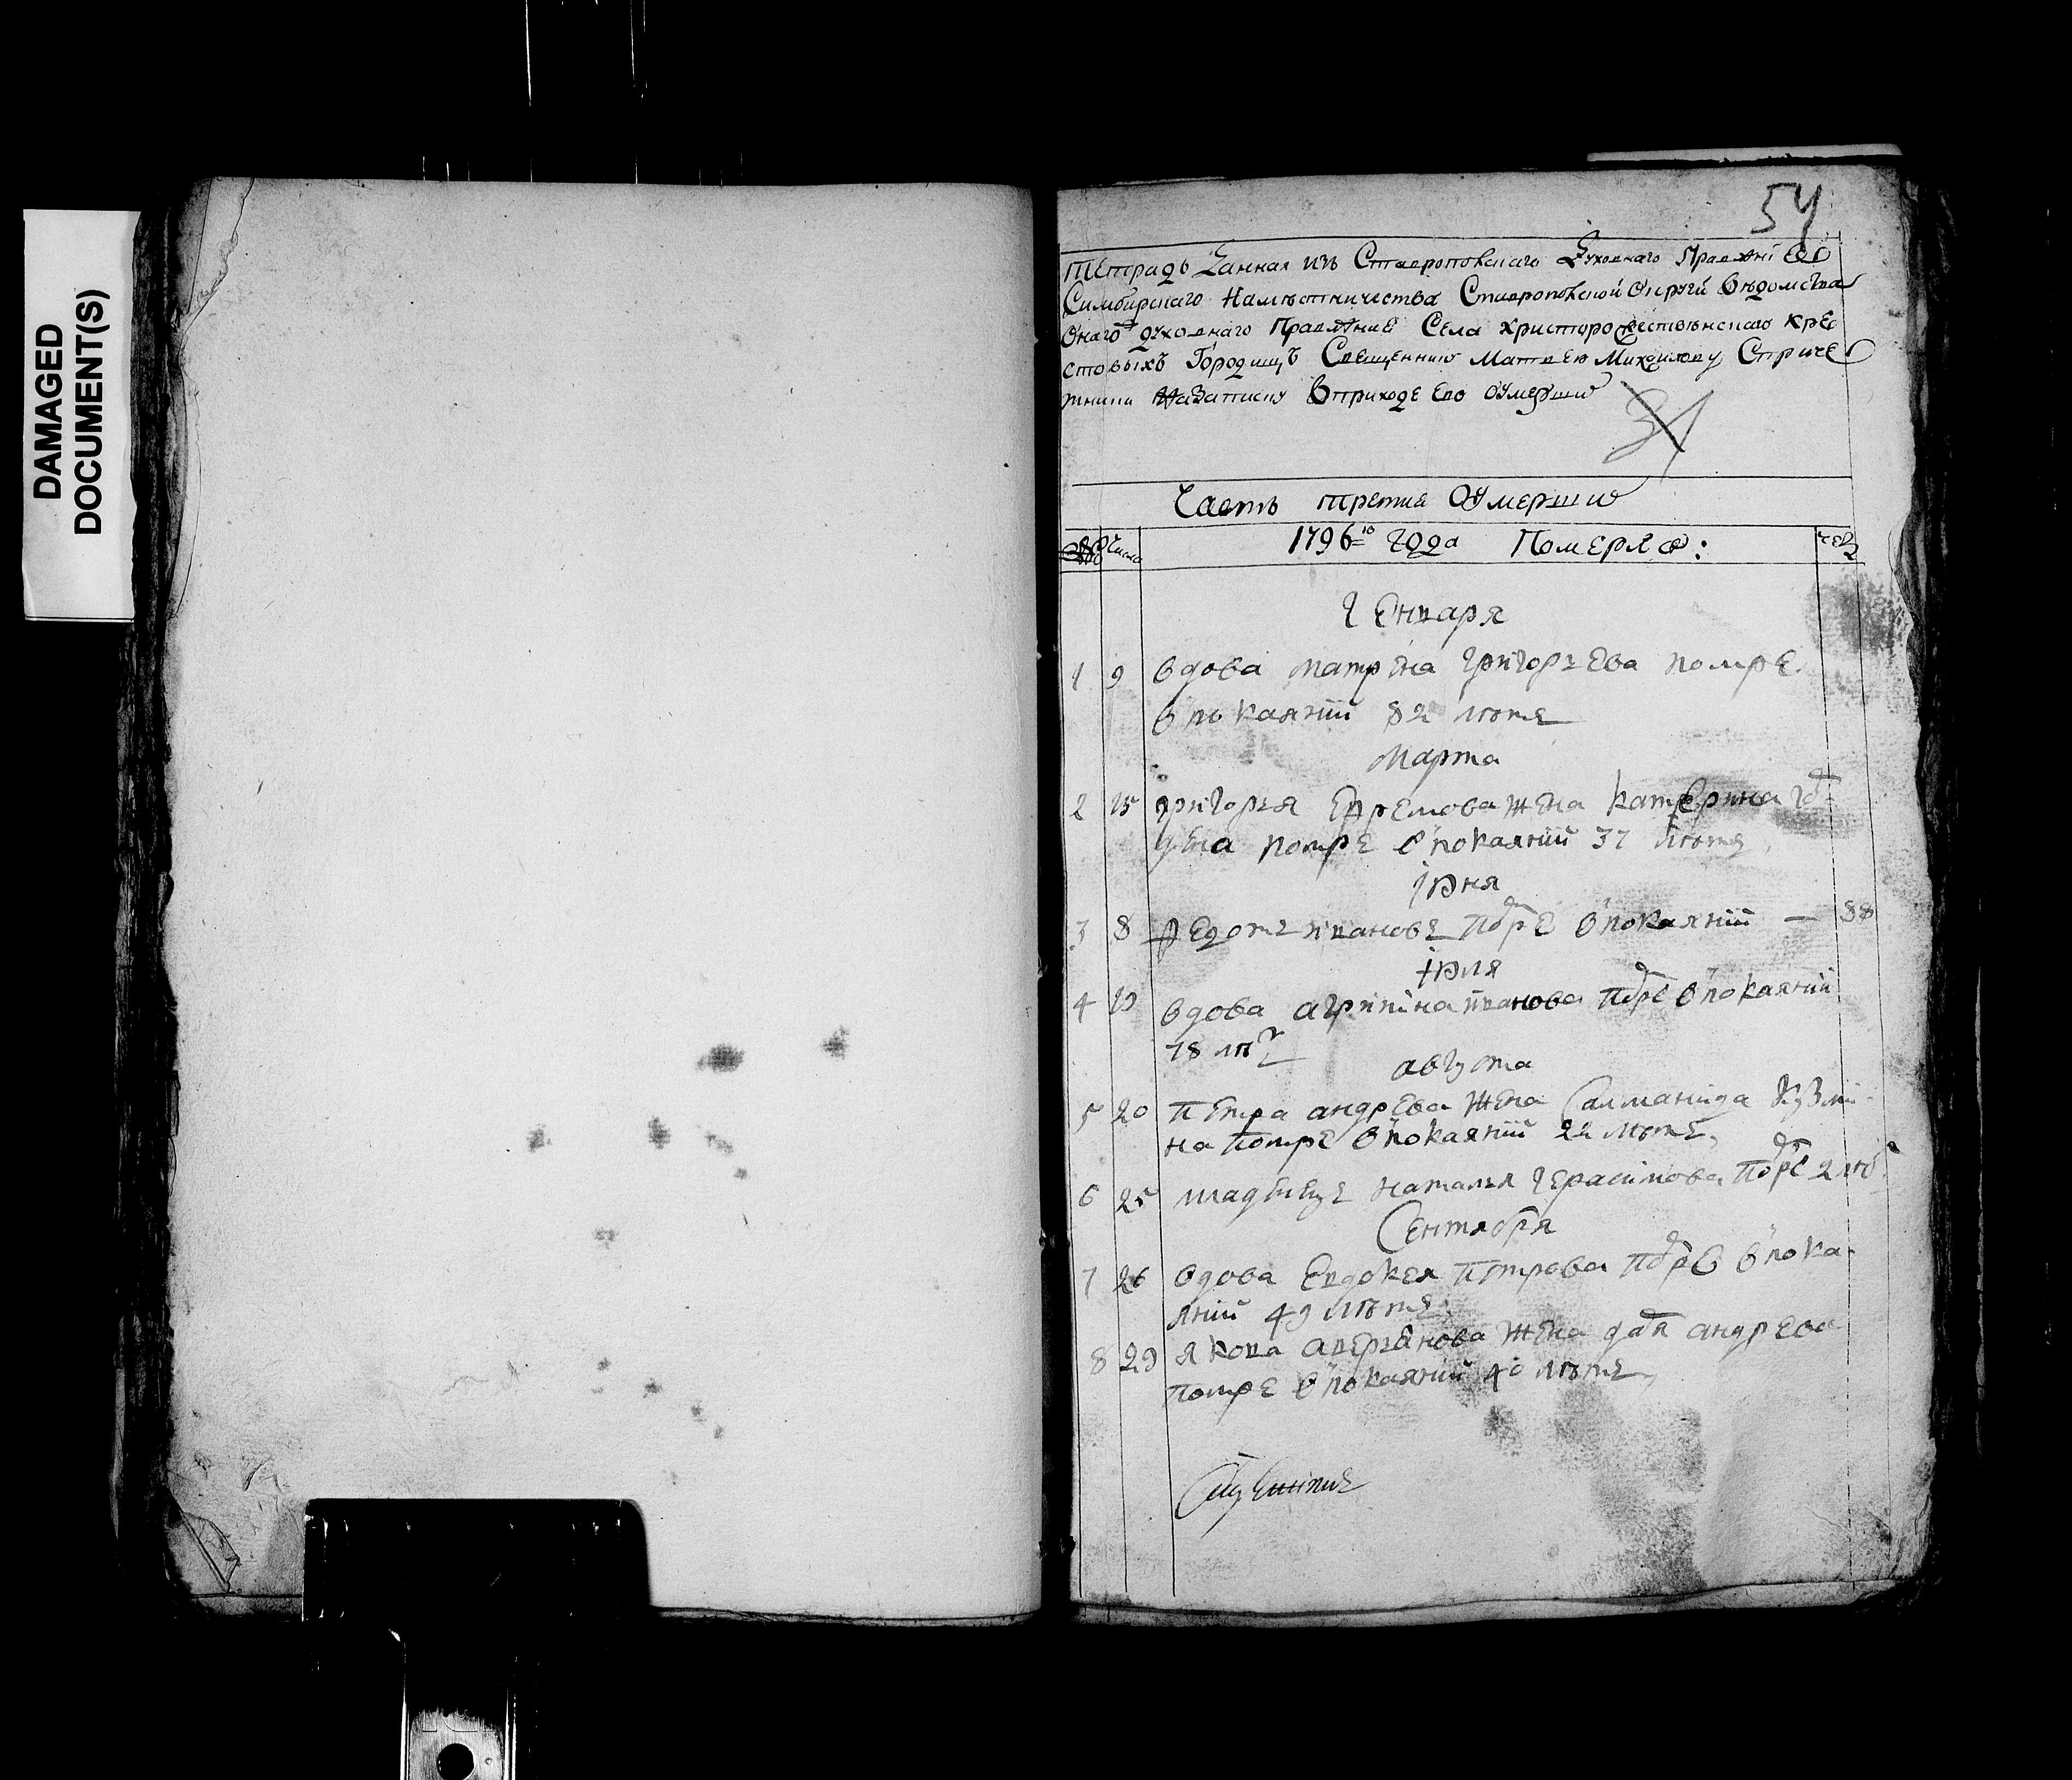 DAMAGED
DOCUMENT(S)
54
Тетрадь Данная изъ Ставропольскаго Духовнаго Правлѣнїя
Симбирскаго Намѣстничества Ставропольской округи вѣдомства
Онаго духовнаго Правлѣния Села христорождественскаго кре
стовыхъ Городищъ Священнику Матвею Михайлову Стриже
на Записку вприходе Его Умерши
34
Часть третия Умерши
Число 1796го года Померло:
Генваря
1 9 вдова матрена григорьева помре
в покаянiи 82 лѣтъ
Марта
2 15 григорья Ефремова жена катерина
помре в покаянiи 37 лѣтъ
Iюня
3 8 Федотъ ивановъ по҆ре в покаянiи — 88
Iюля
4 19 вдова агрипiна иванова по҆ре в покаянiи
78 лѣ
августа
5 20 петра андрева жена Салманiда Кузми
на помре в покаянiи 22 лѣтъ
6 25 младенецъ наталья герасимова по҆ре 2 лѣ
Сентября
7 26 вдова Евдокея петрова по҆ре в пока
янiи 49 лѣтъ
8 29 якова аверьянова жена дая андрева
помре в покаянiи 40 лѣтъ